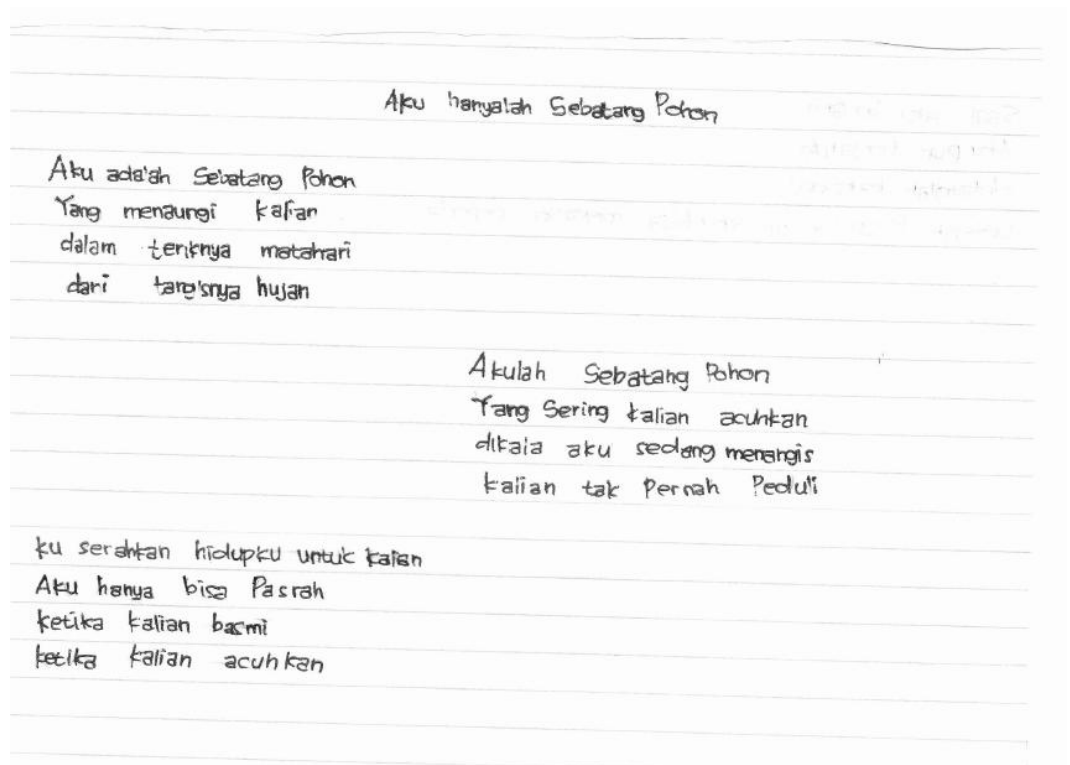 Aku hanyalah Sebatang Pohon
Aku adalah Sebatang Pohon
Yang menaungi kalian
dalam teriknya matahari
dari tangisnya hujan
Akulah Sebatang Pohon
Yang Sering kalian acuhkan
dikala aku sedang menangis
kalian tak Pernah Peduli
ku serahkan hidupku untuk kalian
Aku hanya bisa Pasrah
ketika kalian basmi
ketika kalian acuhkan